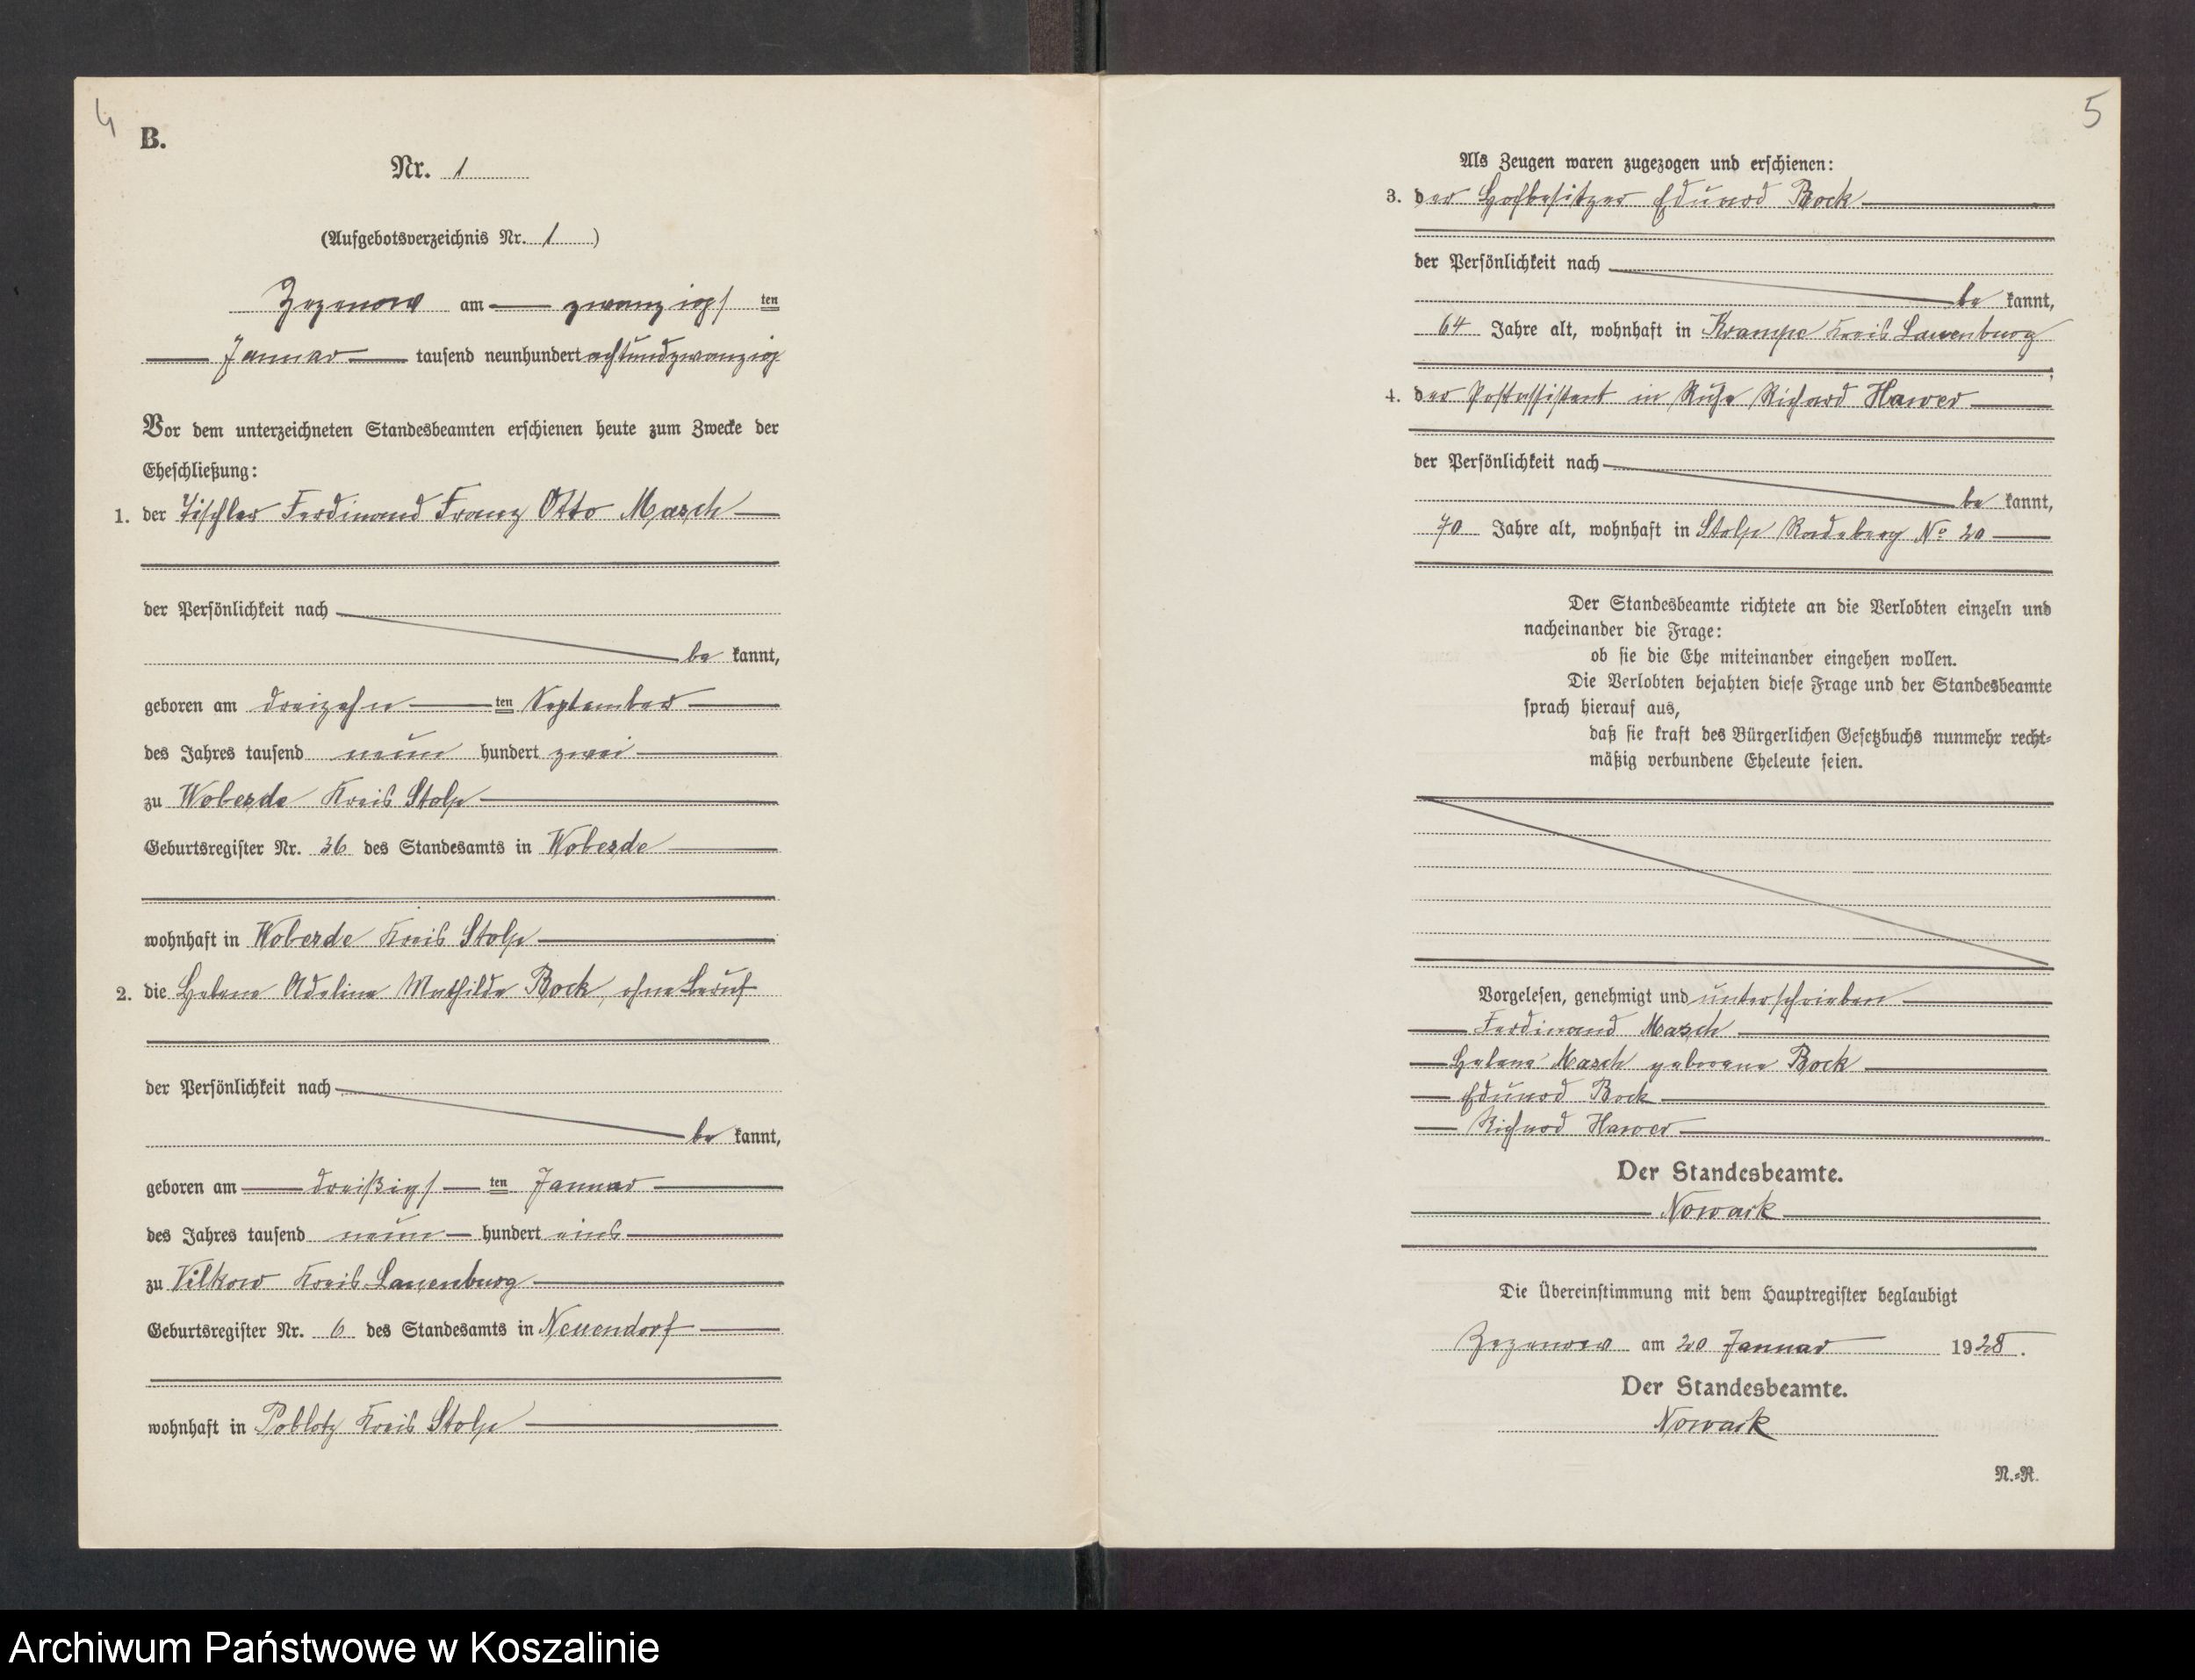 4
B.
Nr. 1
(Aufgebotsverzeichnis Nr. 1)
Zezenow am zwanzigsten
Januar tausend neunhundert achtundzwanzig
Vor dem unterzeichneten Standesbeamten erschienen heute zum Zwecke der
Eheschließung:
1. der Tischler Ferdinand Franz Otto Masch
der Persönlichkeit nach
be kannt,
geboren am dreizehn ten September
des Jahres tausend neun hundert zwei
zu Wobesde Kreis Stolp
Geburtsregister Nr. 36 des Standesamts in Wobesde
wohnhaft in Wobesde Kreis Stolp
2. die Helene Adeline Mathilde Bock, ohne Beruf
der Persönlichkeit nach
be kannt,
geboren am dreißigsten Januar
des Jahres tausend neun hundert eins
zu Vilkow Kreis Lauenburg
Geburtsregister Nr. 6 des Standesamts in Neuendorf
wohnhaft in Poblotz Kreis Stolp
5
Als Zeugen waren zugezogen und erschienen:
3. der Hofbesitzer Eduard Bock
der Persönlichkeit nach
be kannt,
64 Jahre alt, wohnhaft in Krampe Kreis Lauenburg
4. der Postassistent in Ruhe Richard Hawer
der Persönlichkeit nach
be kannt,
70 Jahre alt, wohnhaft in Stolp Radeberg No 20
Der Standesbeamte richtete an die Verlobten einzeln und
nacheinander die Frage:
ob sie die Ehe miteinander eingehen wollen.
Die Verlobten bejahten diese Frage und der Standesbeamte
sprach hierauf aus,
daß sie kraft des Bürgerlichen Gesetzbuchs nunmehr recht-
mäßig verbundene Eheleute seien.
Vorgelesen, genehmigt und unterschrieben
Ferdinand Masch
Helene Masch geborene Bock
Eduard Bock
Richard Hawer
Der Standesbeamte.
Nowack
Die Übereinstimmung mit dem Hauptregister beglaubigt
Zezenow am 20 Januar 1928.
Der Standesbeamte.
Nowack
N.-R.
Archiwum Państwowe w Koszalinie